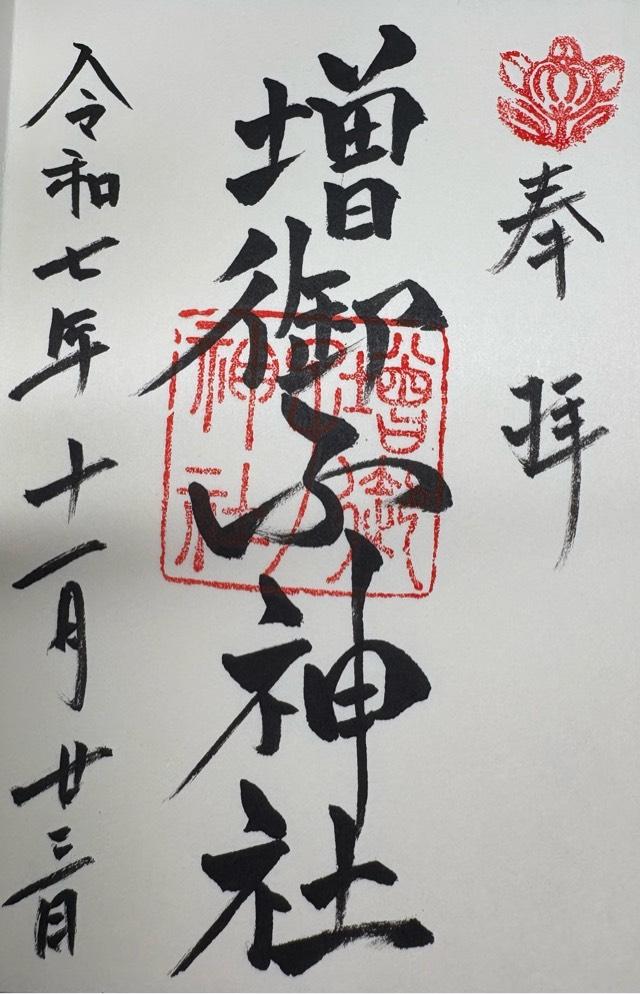 奉拝
増御ふ神社
増御ふ神社
令和七年十一月廿三日